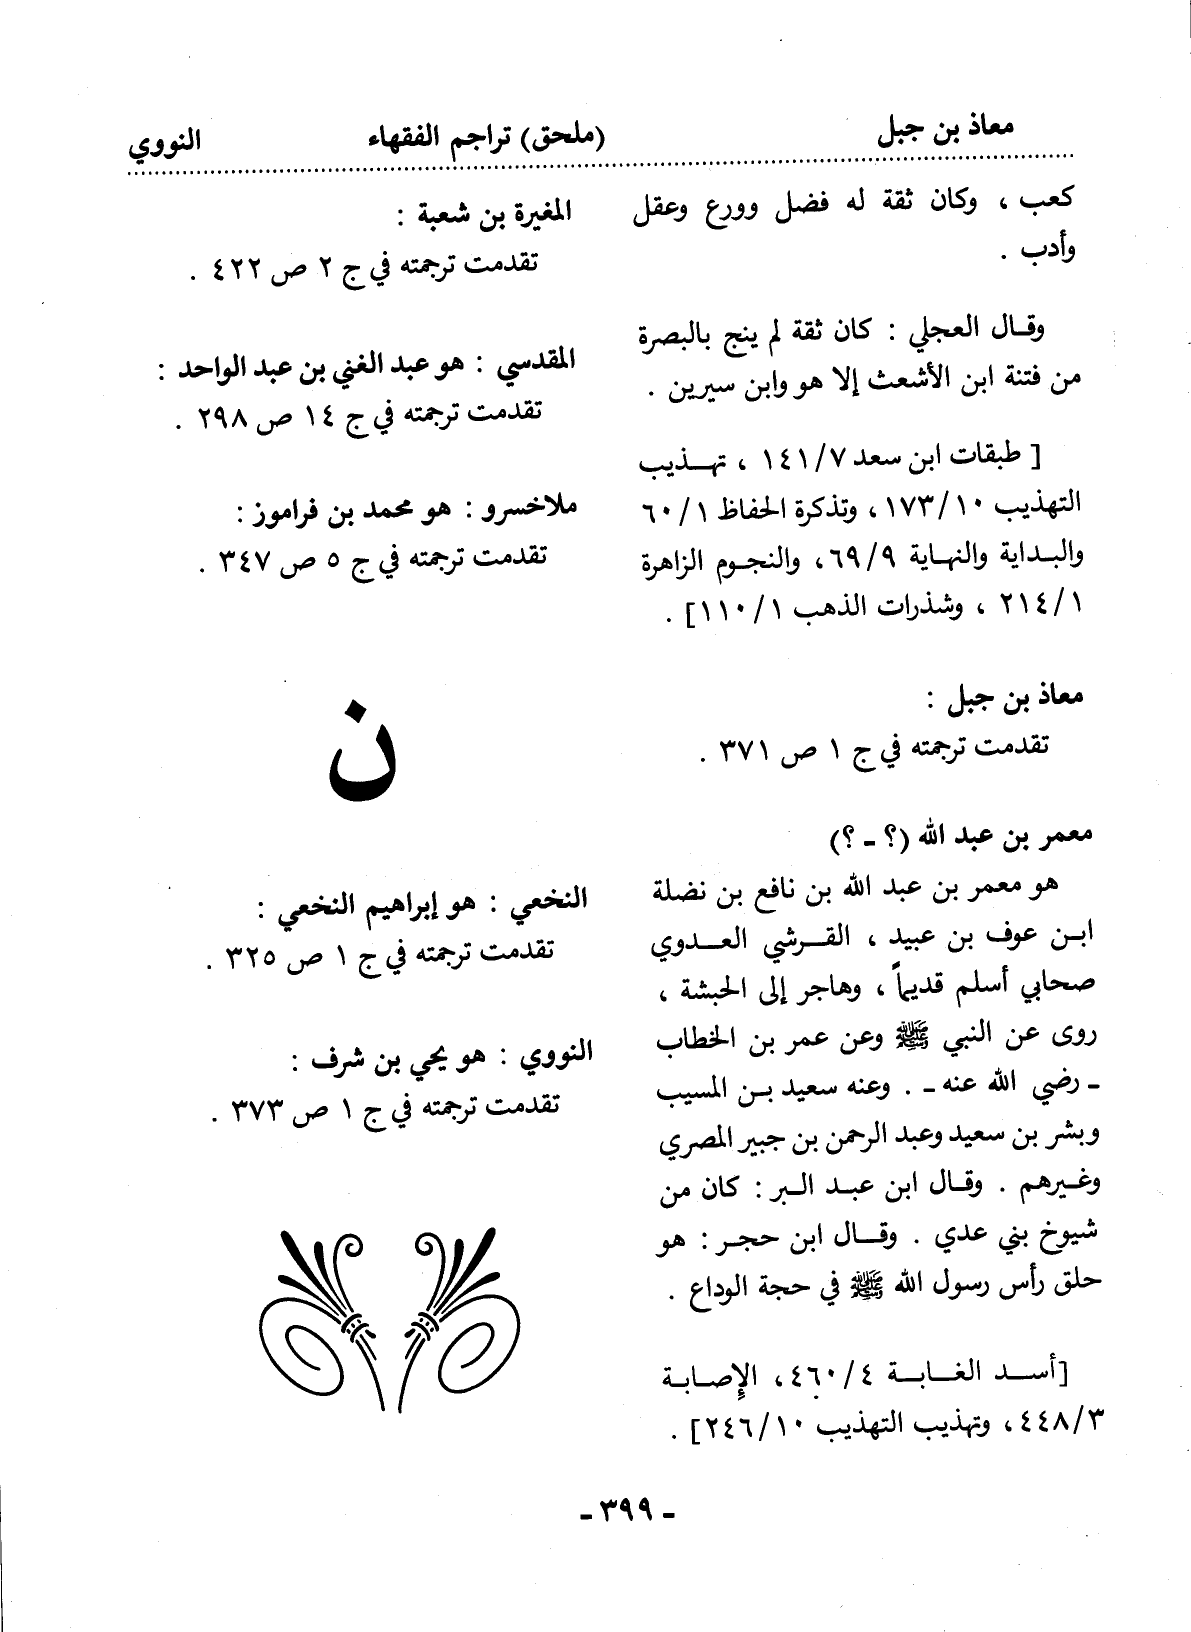 معاذ بن جبل
(ملحق) تراجم الفقهاء
النووي
كعب ، وكان ثقة له فضل وورع وعقل
وأدب .
وقال العجلي : كان ثقة لم ينج بالبصرة
من فتنة ابن الأشعث إلا هو وابن سيرين .
[ طبقات ابن سعد ٧/ ١٤١ ، تهذيب
التهذيب ١٠/ ١٧٣، وتذكرة الحفاظ ١/ ٦٠
والبداية والنهاية ٩/ ٦٩، والنجوم الزاهرة
١/ ٢١٤ ، وشذرات الذهب ١/ ١١٠] .
معاذ بن جبل :
تقدمت ترجمته في ج ١ ص ٣٧١ .
معمر بن عبد الله (؟ - ؟)
هو معمر بن عبد الله بن نافع بن نضلة
ابن عوف بن عبيد ، القرشي العدوي
صحابي أسلم قديماً ، وهاجر إلى الحبشة ،
روى عن النبي ﷺ وعن عمر بن الخطاب
- رضي الله عنه - . وعنه سعيد بن المسيب
وبشر بن سعيد وعبد الرحمن بن جبير المصري
وغيرهم . وقال ابن عبد البر : كان من
شيوخ بني عدي . وقال ابن حجر : هو
حلق رأس رسول الله ﷺ في حجة الوداع .
[أسد الغابة ٤/ ٤٦٠، الإصابة
٣/ ٤٤٨، وتهذيب التهذيب ١٠/ ٢٤٦] .
المغيرة بن شعبة :
تقدمت ترجمته في ج ٢ ص ٤٢٢ .
المقدسي : هو عبد الغني بن عبد الواحد :
تقدمت ترجمته في ج ١٤ ص ٢٩٨ .
ملاخسرو : هو محمد بن فراموز :
تقدمت ترجمته في ج ٥ ص ٣٤٧ .
ن
النخعي : هو إبراهيم النخعي :
تقدمت ترجمته في ج ١ ص ٣٢٥ .
النووي : هو يحي بن شرف :
تقدمت ترجمته في ج ١ ص ٣٧٣ .
- ٣٩٩ -